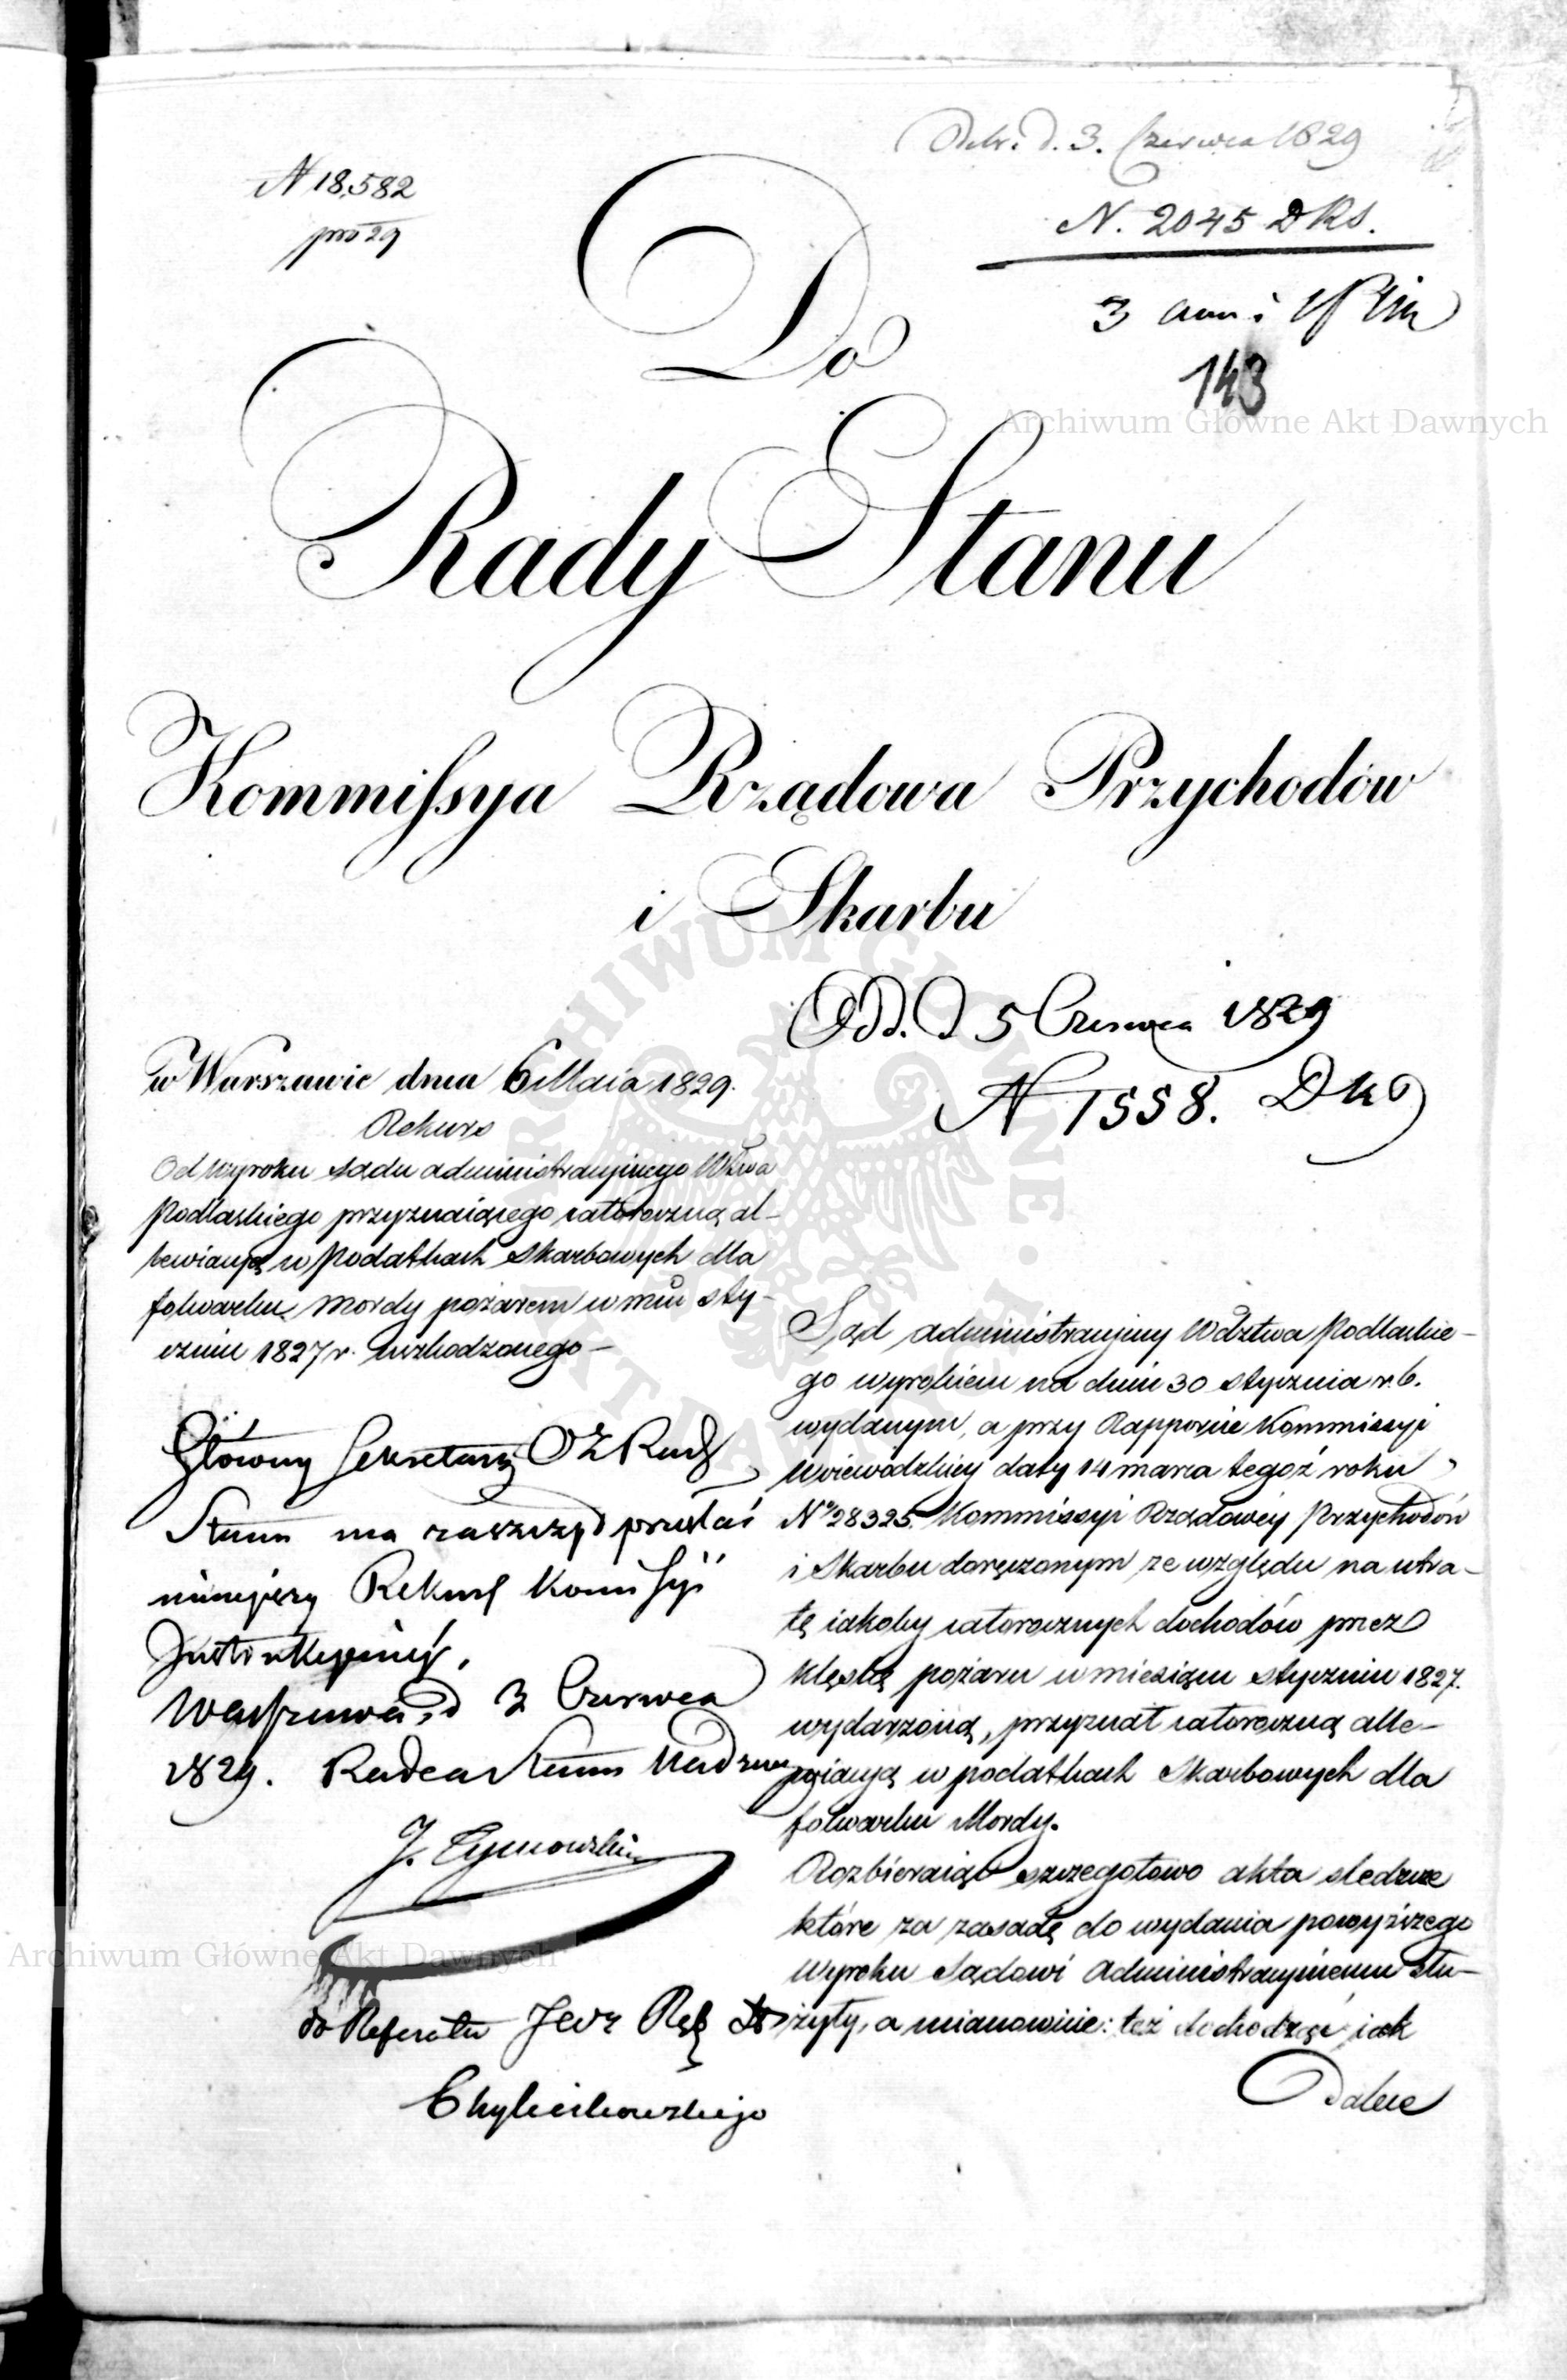 N 18,582
pro 29
Odebr. d. 3. Czerwca 1829
N. 2045 DKS.
143
Do
Rady Stanu
Kommissya Rządowa Przychodów
i Skarbu
Odd. D 5 Czerwca 1829
N 1558. Dko
w Warszawie dnia 6 Maia 1829.
Rekurs
Od Wyroku Sądu administracyjnego Wdztwa
Podlaskiego przyznaiącego całoroczną al-
lewiacyą w Podatkach Skarbowych dla
folwarku Mordy pożarem w mcu sty-
czniu 1827 r. uszkodzonego –
Główny Sekretarz Rady
Stanu ma zaszczyd przesłać
ninieyszy Rekurs Kommissyi
Instrukcyiney,
Warszawa, d 3 Czerwca
1829. Radca Stanu Nadzwy
J. Tymowski
do Referatu JWr Ref
Chyliczkowskiego
Sąd administracyjny Wdztwa Podlaskie-
go wyrokiem na dniu 30 stycznia r.b.
wydanym, a przy Rapporcie Kommissyi
Woiewódzkiey daty 14 marca tegoż roku
No 28325. Kommissyi Rządowéy Przychodów
i Skarbu doręczonym ze względu na utra-
tę iakoby całorocznych dochodów przez
klęskę pożaru w miesiącu styczniu 1827.
wydarzoną, przyznał całoroczną alle-
wiacyą w podatkach Skarbowych dla
folwarku Mordy.
Rozbieraiąc szczegółowo akta śledcze
które za zasadę do wydania powyższego
Wyroku Sądowi Administracyinemu słu-
żyły, a mianowicie: też dochodząc iak
Dalece
Archiwum Główne Akt Dawnych
Archiwum Główne Akt Dawnych
ARCHIWUM GŁÓWNE AKT DAWNYCH